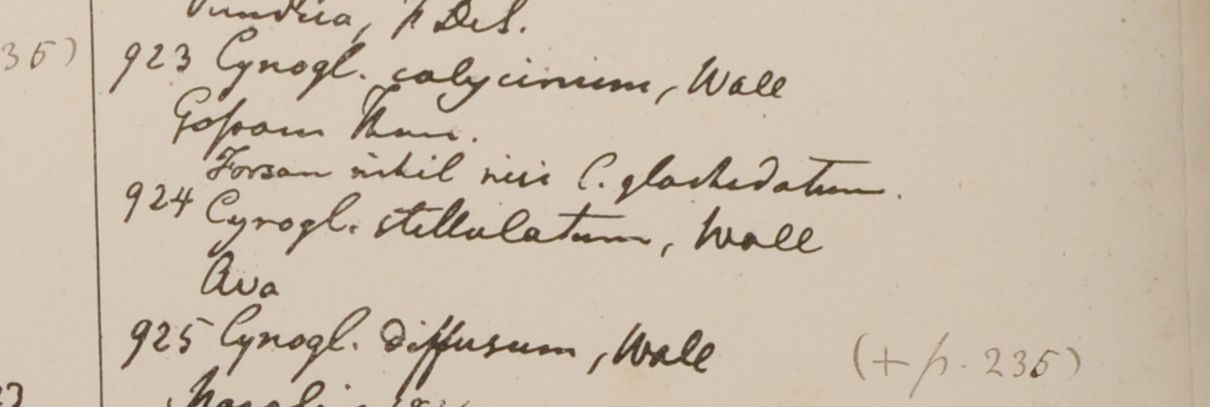 923 Cynogl. calycinum, Wall
Gossain Than.
Forsan nihil nisi C. glochidatum.
924 Cynogl. stellulatum, Wall
Ava
925 Cynogl. diffusum, Wall (+ p. 235)